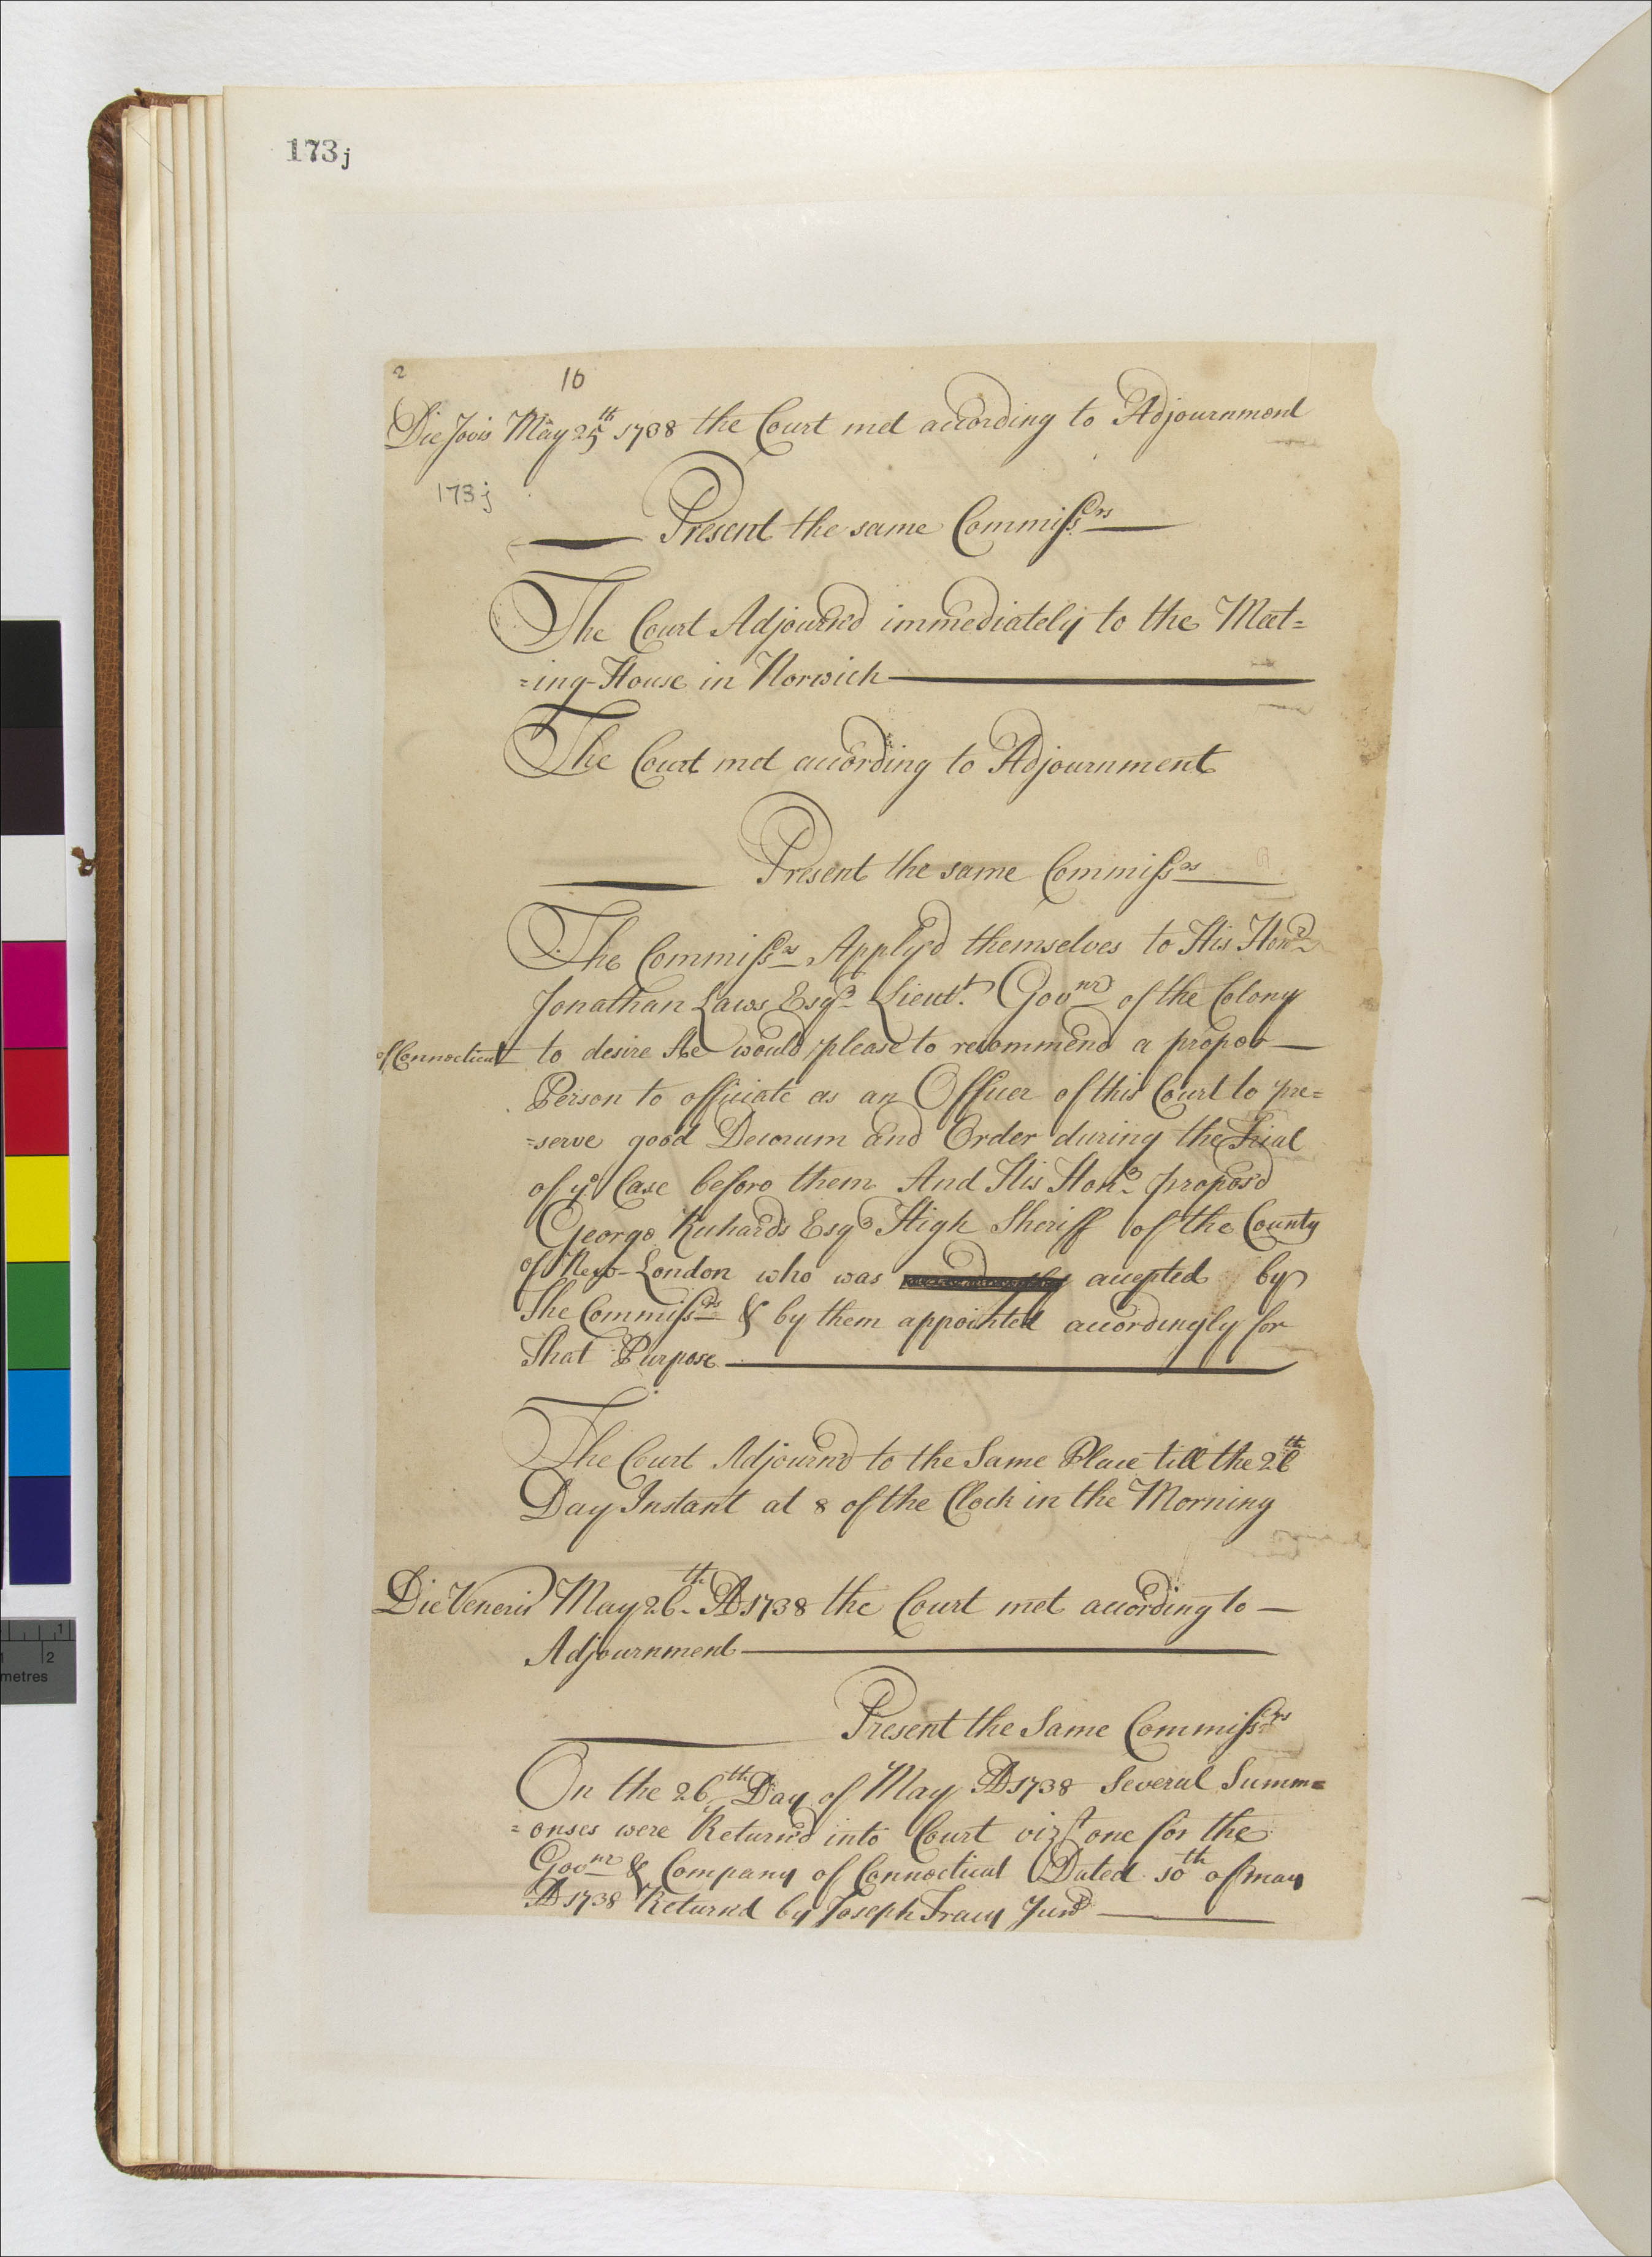 173j
2
10
Die Jovis May 25th 1738 the Court met according to Adjournment
173j
Present the same Commissrs
The Court Adjourn'd immediately to the Meet=
=ing-House in Norwich
The Court met according to Adjournment
Present the same Commissrs
The Commissrs Apply'd themselves to His Honr
Jonathan Laws Esqr Lieutt. Govnr of the Colony
of Connecticut to desire he would please to recommend a proper
Person to officiate as an Officer of this Court to pre=
=serve good Decorum and Order during the Trial
of ye Case before them And His Honr propos'd
George Richards Esqr High Sheriff of the County
of New-London who was accepted by
The Commissrs & by them appointed accordingly for
That Purpose
The Court Adjourn'd to the Same Place till the 26th
Day Instant at 8 of the Clock in the Morning
Die Veneris May 26th AD 1738 the Court met according to
Adjournment
Present the Same Commissrs
On the 26th Day of May AD 1738 Several Summ=
=onses were Return'd into Court vizt one for the
Govnr & Company of Connecticut Dated 10th of may
AD 1738 Return'd by Joseph Tracy Junr
1
2
metres